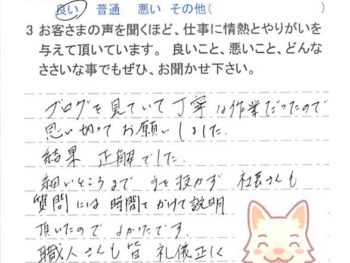 良い 普通 悪い その他(          )
3 お客さまの声を聞くほど、仕事に情熱とやりがいを
与えて頂いています。 良いこと、悪いこと、どんな
ささいな事でもぜひ、お聞かせ下さい。
ブログを見ていて丁寧な作業だったので
思い切ってお願いしました.
結果 正解でした.
細いところまで 手を抜かず 社長さんも
質問には時間をかけて説明
頂いたので よかったです.
職人さんも皆 礼儀正しく